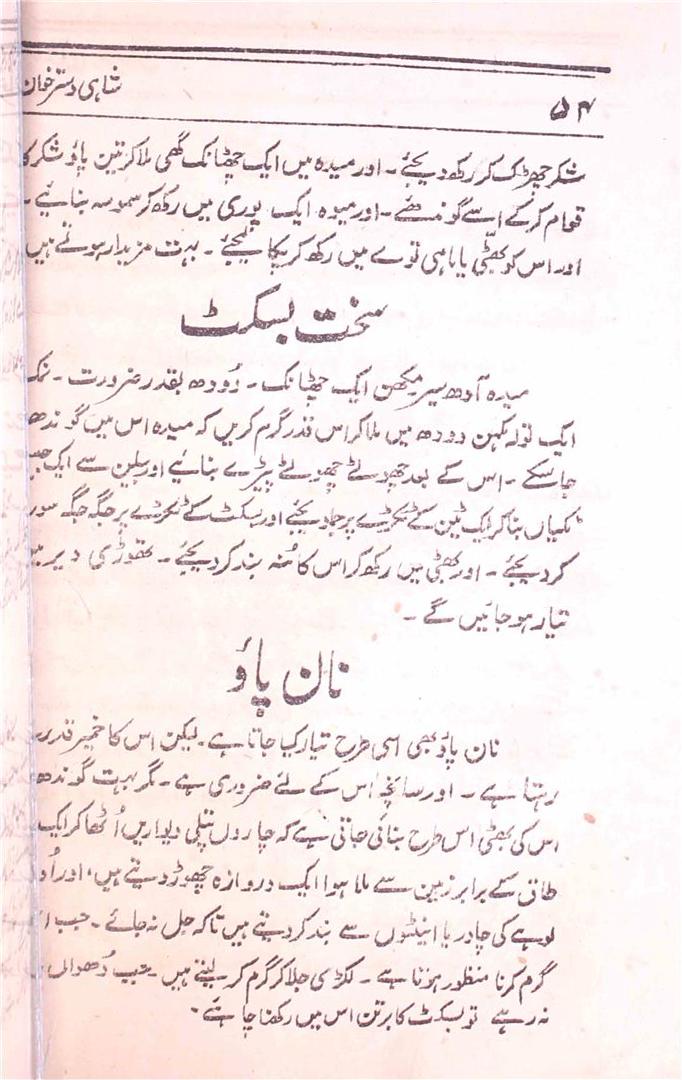 شاہی دسترخوان
۵۴
شکر چھڑک کر رکھ دیجئے ۔ اور میدہ میں ایک چھٹانک گھی ملا کر تین پاؤ شکر کا
قوام کرکے اسے گوندھئے ۔ اور میوہ ایک پوری میں رکھ کر سموسہ بنائیے ۔
اور اس کو بھٹی یا ماہی توے میں رکھ کر پکا لیجئے ۔ بہت مزیدار ہوتے ہیں
سخت بسکٹ
میدہ آدھ سیر مکھن ایک چھٹانک ۔ دُودھ بقدر ضرورت ۔ نمک
ایک تولہ مکھن دودھ میں ملا کر اس قدر گرم کریں کہ میدہ اس میں گوندھا
جا سکے ۔ اس کے بعد چھوٹے چھوٹے پیڑے بنائیے اور بیلن سے ایک
ٹکیاں بنا کر ایک ٹین کے ٹکڑے پر جما دیجئے اور بسکٹ کے ٹکڑے پر جگہ جگہ
کر دیجئے ۔ اور بھٹی میں رکھ کر اس کا مُنہ بند کر دیجئے ۔ تھوڑی دیر میں
تیار ہو جائیں گے ۔
نان پاؤ
نان پاؤ بھی اسی طرح تیار کیا جاتا ہے ۔ لیکن اس کا خمیر قدرے
رہتا ہے ۔ اور سانچہ اس کے لئے ضروری ہے ۔ مگر بہت گوندھ
اس کی بھٹی اس طرح بنائی جاتی ہے کہ چاروں پتلی دیواریں اُٹھا کر ایک
طاق کے برابر زمین سے ملا ہوا ایک دروازہ چھوڑ دیتے ہیں، اور
لوہے کی چادر یا اینٹوں سے بند کر دیتے ہیں تاکہ جل نہ جائے ۔ جب
گرم کرنا منظور ہوتا ہے ۔ لکڑی جلا کر گرم کر لیتے ہیں ۔ جب دُھواں
نہ رہے تو بسکٹ کا برتن اس میں رکھنا چاہئے ۔